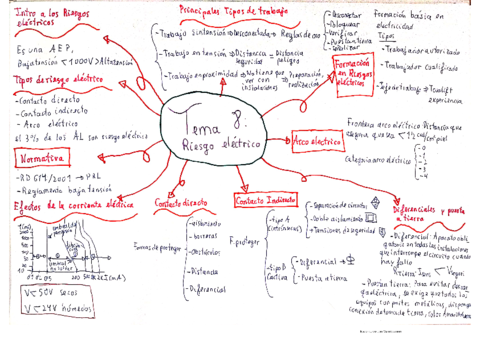 Intro a los Riesgos
eléctricos
Es una AEP.
Baja tensión < 1000V > Alta tensión
Tipos de riesgo eléctrico
- Contacto directo
- Contacto indirecto
- Arco eléctrico
el 3% de los AL son riesgo eléctrico
Normativa
- RD 614/2001 → PRL
- Reglamento baja tensión
Efectos de la corriente eléctrica
t(ms)
I(mA)
V < 50V secos
V < 24V húmedos
Principales Tipos de trabajo
- Trabajo sin tensión → Desconectada → Reglas de oro
- Desconectar
- Bloquear
- Verificar
- Señalizar
- Trabajo en tensión → Distancia seguridad - Distancia peligro
- Trabajo en proximidad → No tiene que ver con
Preparación,
Tema 8:
Riesgo eléctrico
Formación
en Riesgos
eléctricos
Formación básica en
electricidad
Tipos
- Trabajador autorizado
- Trabajador cualificado
- Jefe de trabajo →
experiencia
Arco electrico
Frontera arco eléctrico Distancia que
Categoria arco eléctrico
- 0
- 1
- 2
- 3
- 4
Contacto directo
Formas de proteger
- aislamiento
- barreras
- Obstáculos
- Distancia
- Diferencial
Contacto Indirecto
F. proteger
- tipo A
- Separación de circuitos
- Doble aislamiento
- Tensiones de seguridad
- tipo B
(activa)
- Diferencial
- Puesta a tierra
Diferenciales y puesta
a tierra
- Diferencial: Aparato obli
gatorio en todas las instalaciones
que interrumpe el circuito cuando
hay fallo
- Puesta a tierra: Para evitar descar
ga eléctrica, se exige que todos los
equipos con partes metálicas, dispongan
conexión de toma de tierra,